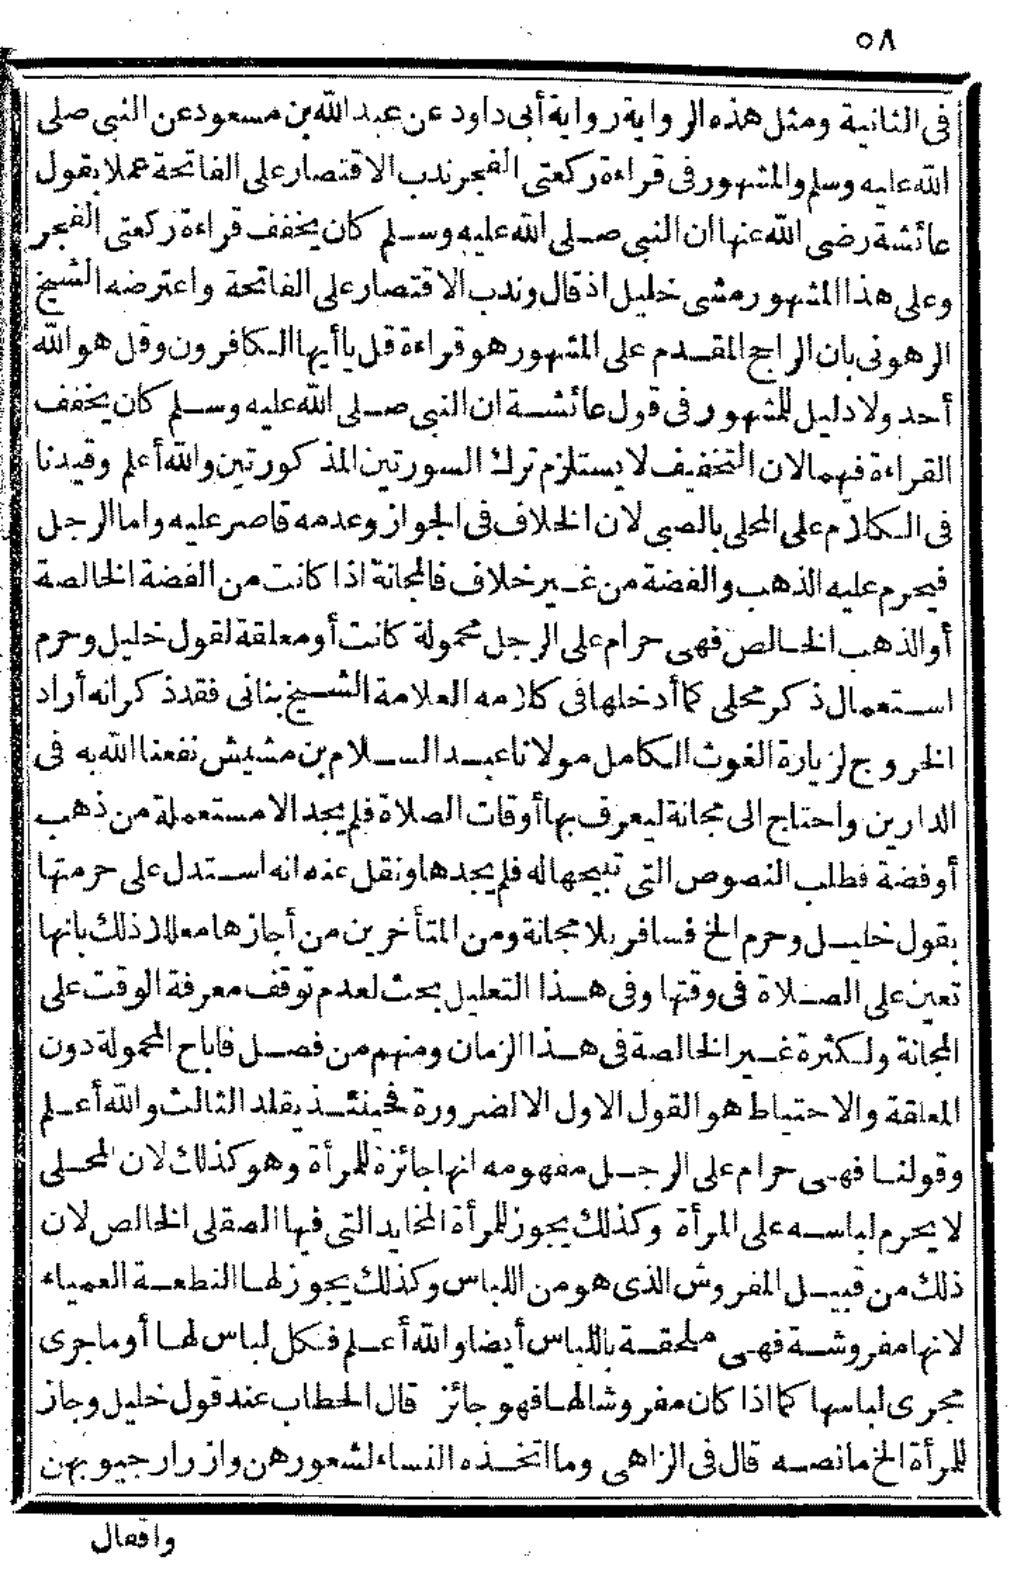 ٥٨
فى الثانية ومثل هذه الرواية رواية أبى داود عن عبد الله بن مسعود عن النبى صلى
الله عليه وسلم والمشهور فى قراءة ركعتى الفجر ندب الاقتصار على الفاتحة عملا بقول
عائشة رضى الله عنها ان النبى صلى الله عليه وسلم كان يخفف قراءة ركعتى الفجر
وعلى هذا المشهور مشى خليل اذ قال وندب الاقتصار على الفاتحة واعترضه الشيخ
الرهونى بان الراجح المقدم على المشهور هو قراءة قل يا أيها الكافرون وقل هو الله
أحد ولا دليل للمشهور فى قول عائشة ان النبى صلى الله عليه وسلم كان يخفف
القراءة فيهما لان التخفيف لا يستلزم ترك السورتين المذكورتين والله أعلم وقيدنا
فى الكلام على المحلى بالصبى لان الخلاف فى الجواز وعدمه قاصر عليه واما الرجل
فيحرم عليه الذهب والفضة من غير خلاف فالمجانة اذا كانت من الفضة الخالصة
أو الذهب الخالص فهى حرام على الرجل محمولة كانت أو معلقة لقول خليل وحرم
استعمال ذكر محلى كما أدخلها فى كلامه العلامة الشيخ بنانى فقد ذكر انه أراد
الخروج لزيارة الغوث الكامل مولانا عبد السلام بن مشيش نفعنا الله به فى
الدارين واحتاج الى مجانة ليعرف بها أوقات الصلاة فلم يجد الا مستعملة من ذهب
أو فضة فطلب النصوص التى تبيحها له فلم يجدها ونقل عنه انه استدل على حرمتها
بقول خليل وحرم الخ فسافر بلا مجانة ومن المتأخرين من أجازها معللا ذلك بانها
تعين على الصلاة فى وقتها وفى هذا التعليل بحث لعدم توقف معرفة الوقت على
المجانة ولكثرة غير الخالصة فى هذا الزمان ومنهم من فصل فاباح المحمولة دون
المعلقة والاحتياط هو القول الاول الا لضرورة فحينئذ يقلد الثالث والله أعلم
وقولنا فهى حرام على الرجل مفهومه انها جائزة للمرأة وهو كذلك لان المحلى
لا يحرم لباسه على المرأة وكذلك يجوز للمرأة المخايد التى فيها الصقلى الخالص لان
ذلك من قبيل المفروش الذى هو من اللباس وكذلك يجوز لها النطعة العمياء
لانها مفروشة فهى ملحقة باللباس أيضا والله أعلم فكل لباس لها أو ما جرى
مجرى لباسها كما اذا كان مفروشا لها فهو جائز قال الحطاب عند قول خليل وجاز
للمرأة الخ ما نصه قال فى الزاهى وما اتخذه النساء لشعورهن وازرار جيوبهن
واقفال